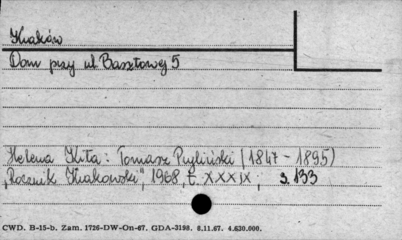 Kraków
Dom przy ul. Basztowej 5
Helena Kita: Tomasz Pryliński (1847 - 1895)
"Rocznik Krakowski", 1968, t. XXXIX; s. 133
CWD. B-15-b. Zam. 1726-DW-On-67. GDA-3198. 8.11.67. 4.630.000.